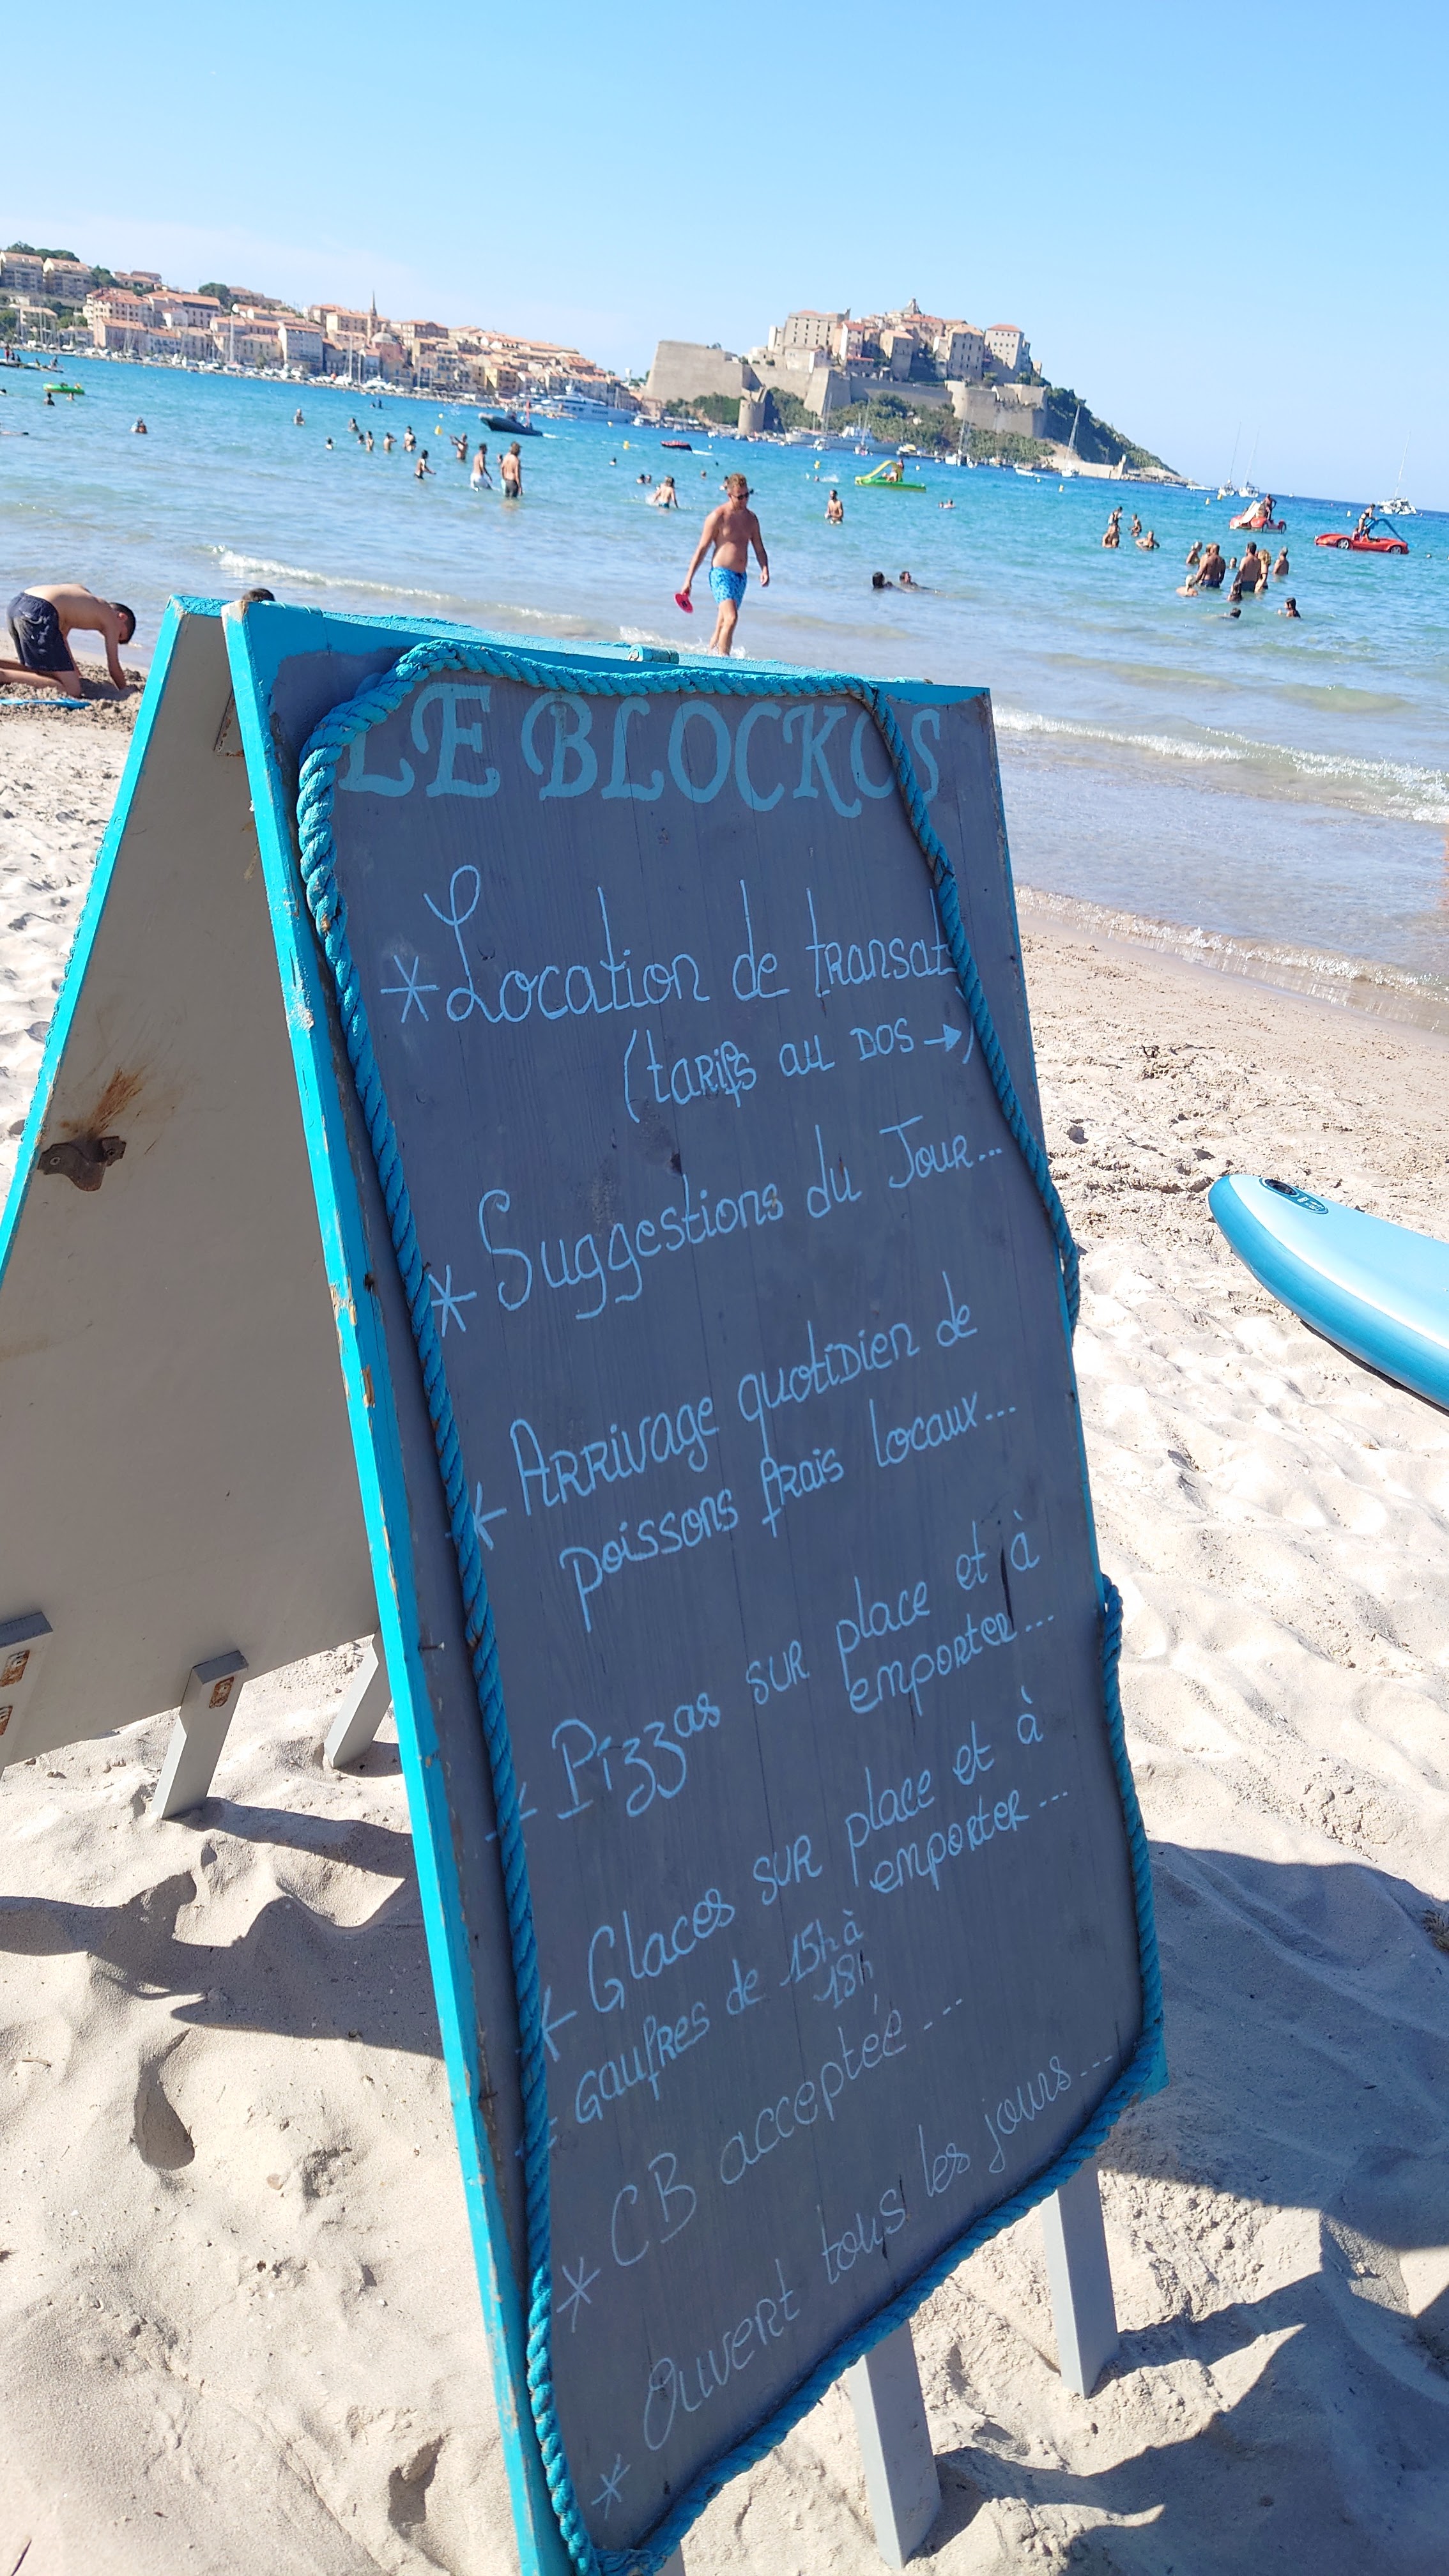 LE BLOCKOS
* Location de transat
(tarifs au DOS →)
* Suggestions du Jour...
* Arrivage quotidien de
poissons frais locaux...
* Pizzas sur place et à
emporter...
* Glaces sur place et à
emporter...
* Gaufres de 15h à
18h
* CB acceptée...
* Ouvert tous les jours...